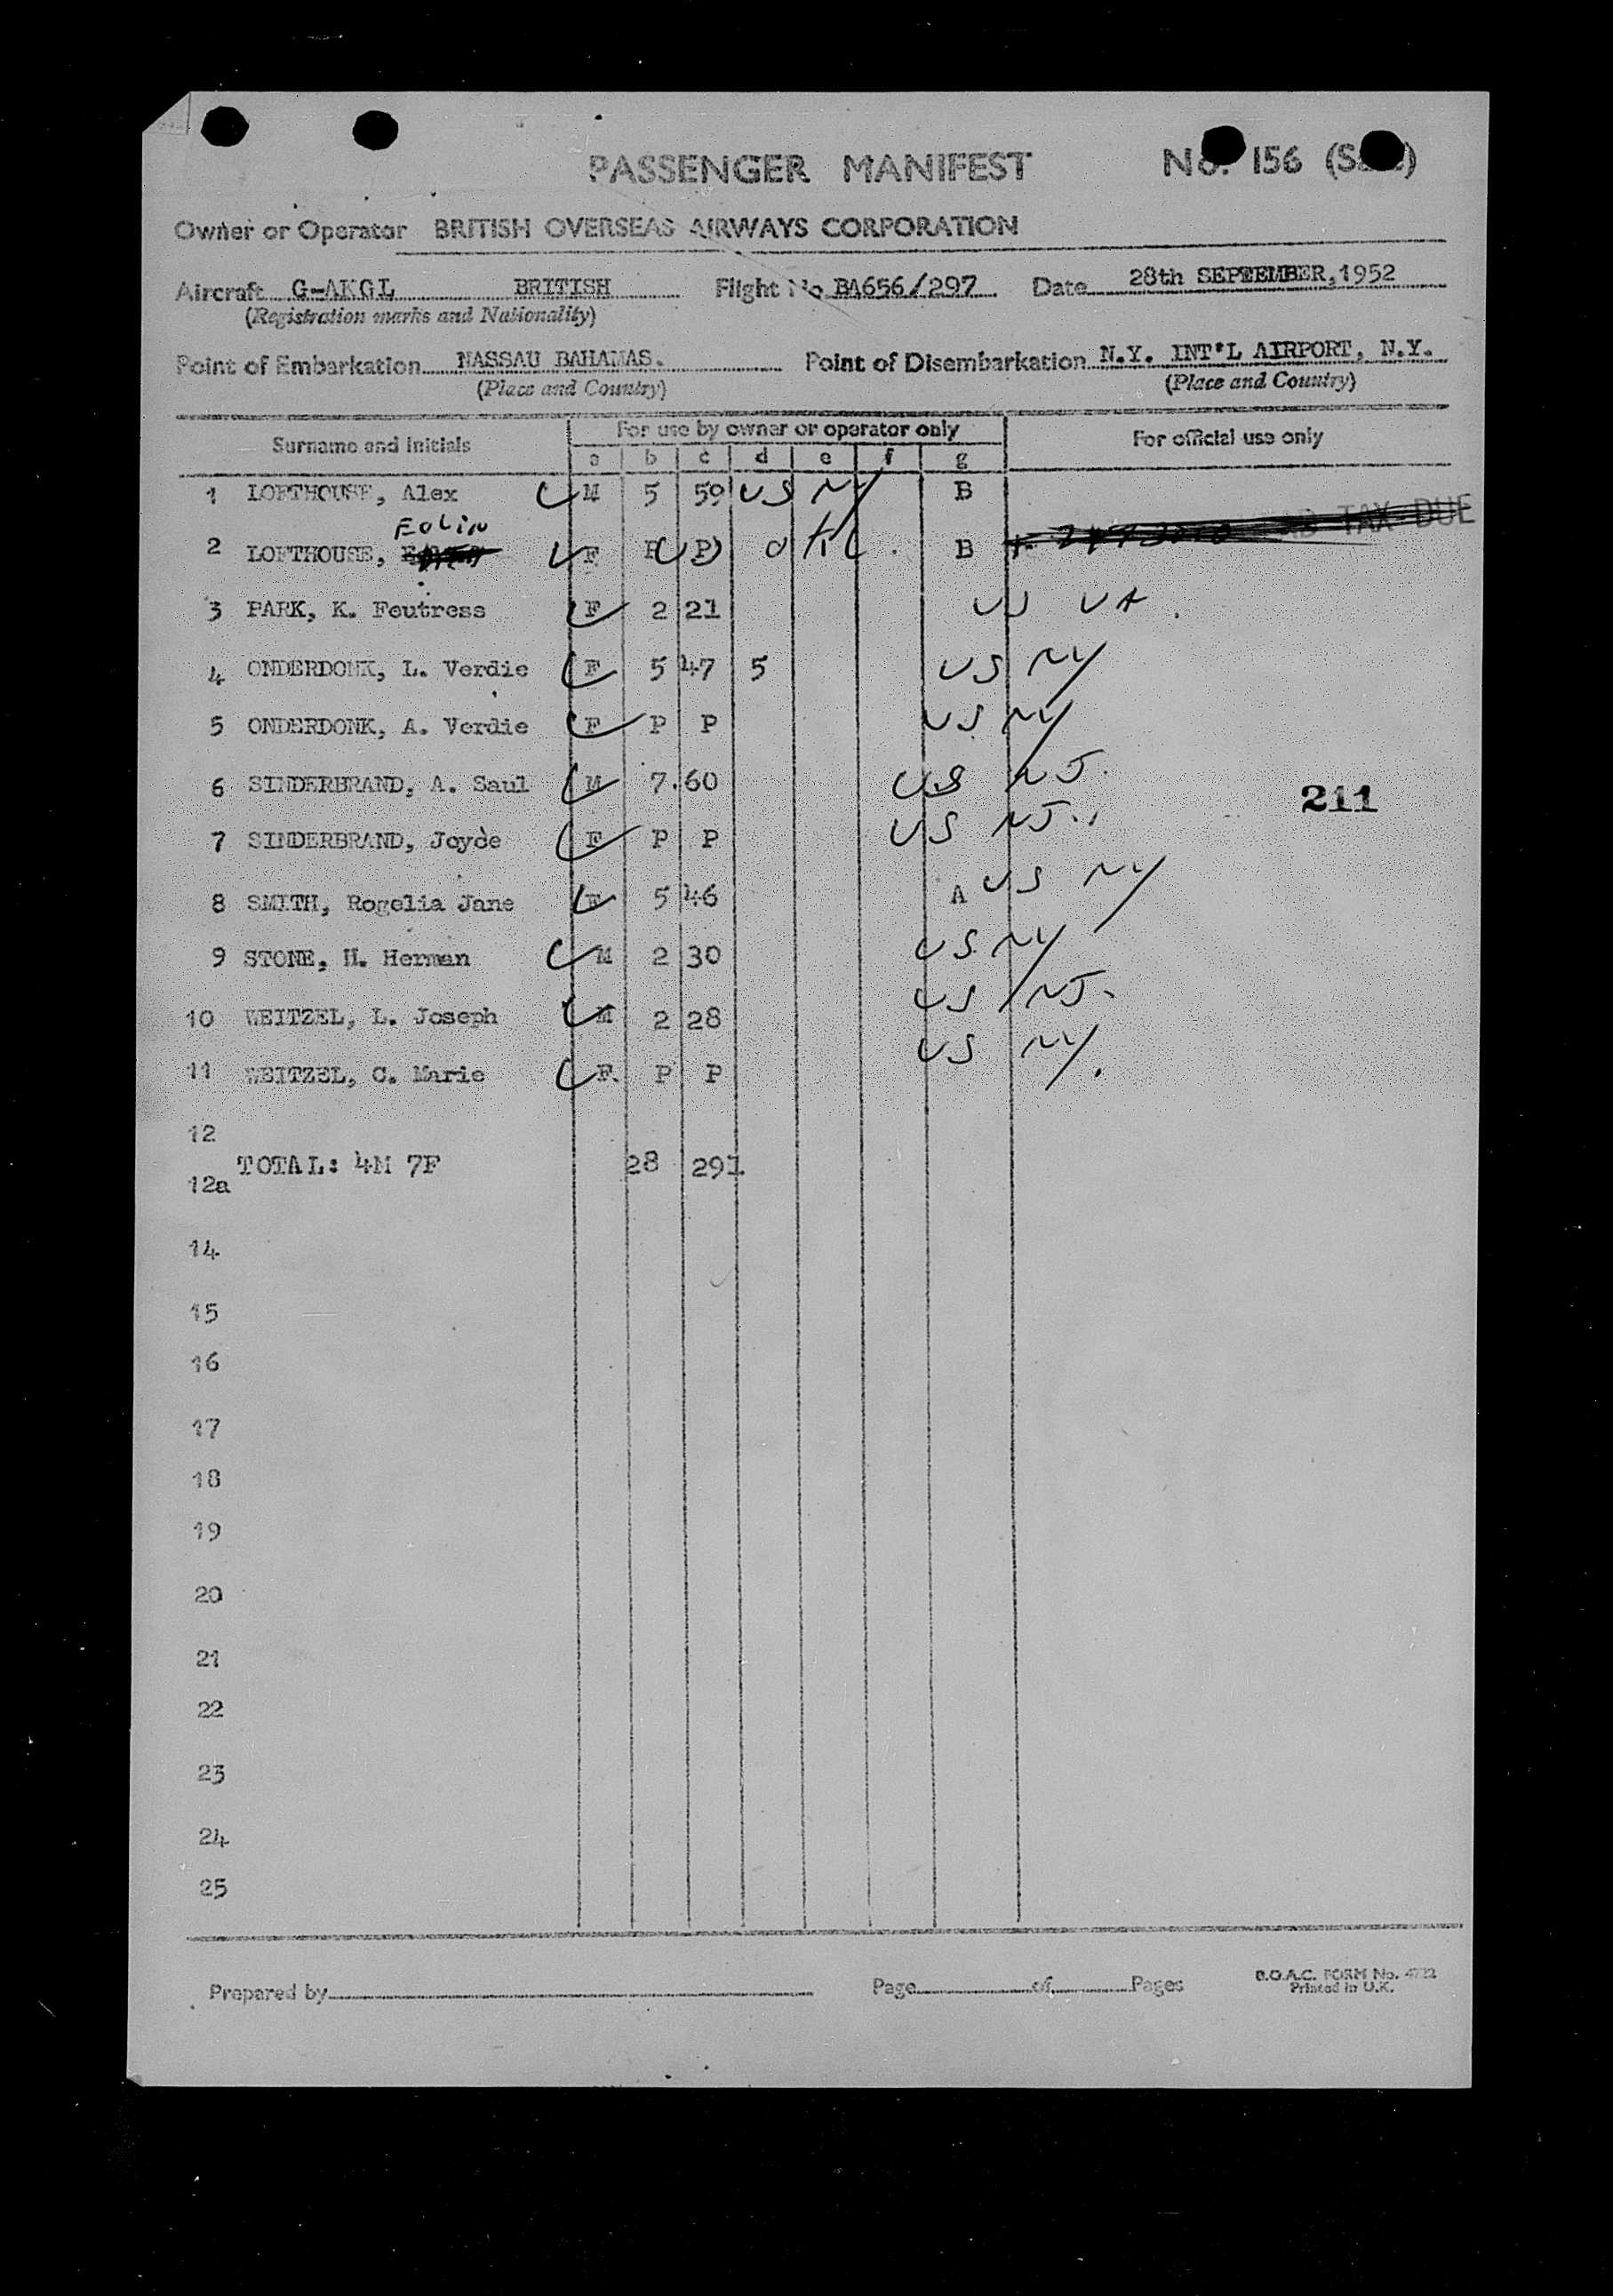 PASSENGER MANIFEST No. 156
Owner or Operator BRITISH OVERSEAS AIRWAYS CORPORATION
Aircraft G-AKGL BRITISH Flight No BA656/297 Date 28th SEPTEMBER, 1952
(Registration marks and Nationality)
Point of Embarkation NASSAU BAHAMAS. Point of Disembarkation N.Y. INT'L AIRPORT, N.Y.
(Place and Country) (Place and Country)
Surname and Initials For use by owner or operator only For official use only
a b c d e f g
1 LOFTHOUSE, Alex M 5 59 US NY B
TAX DUE
2 LOFTHOUSE, F P P B
3 PARK, K. Feutress F 2 21 US VA.
4 ONDERDONK, L. Verdie F 5 47 5 US NY
5 ONDERDONK, A. Verdie F P P US NY
6 SINDERBRAND, A. Saul M 7.60 US NJ.
7 SINDERBRAND, Joyce F P P US NJ.
211
8 SMITH, Rogelia Jane F 5 46 A US NY
9 STONE, H. Herman M 2 30 US NY
10 WEITZEL, L. Joseph M 2 28 US NJ.
11 WEITZEL, C. Marie F. P P US NY.
12
TOTAL: 4M 7F 28 291
12a
14
15
16
17
18
19
20
21
22
23
24
25
Prepared by Page of Pages B.O.A.C. FORM No.
Printed in U.K.